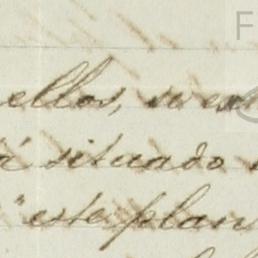 ellos, se en
á situado
" este plan